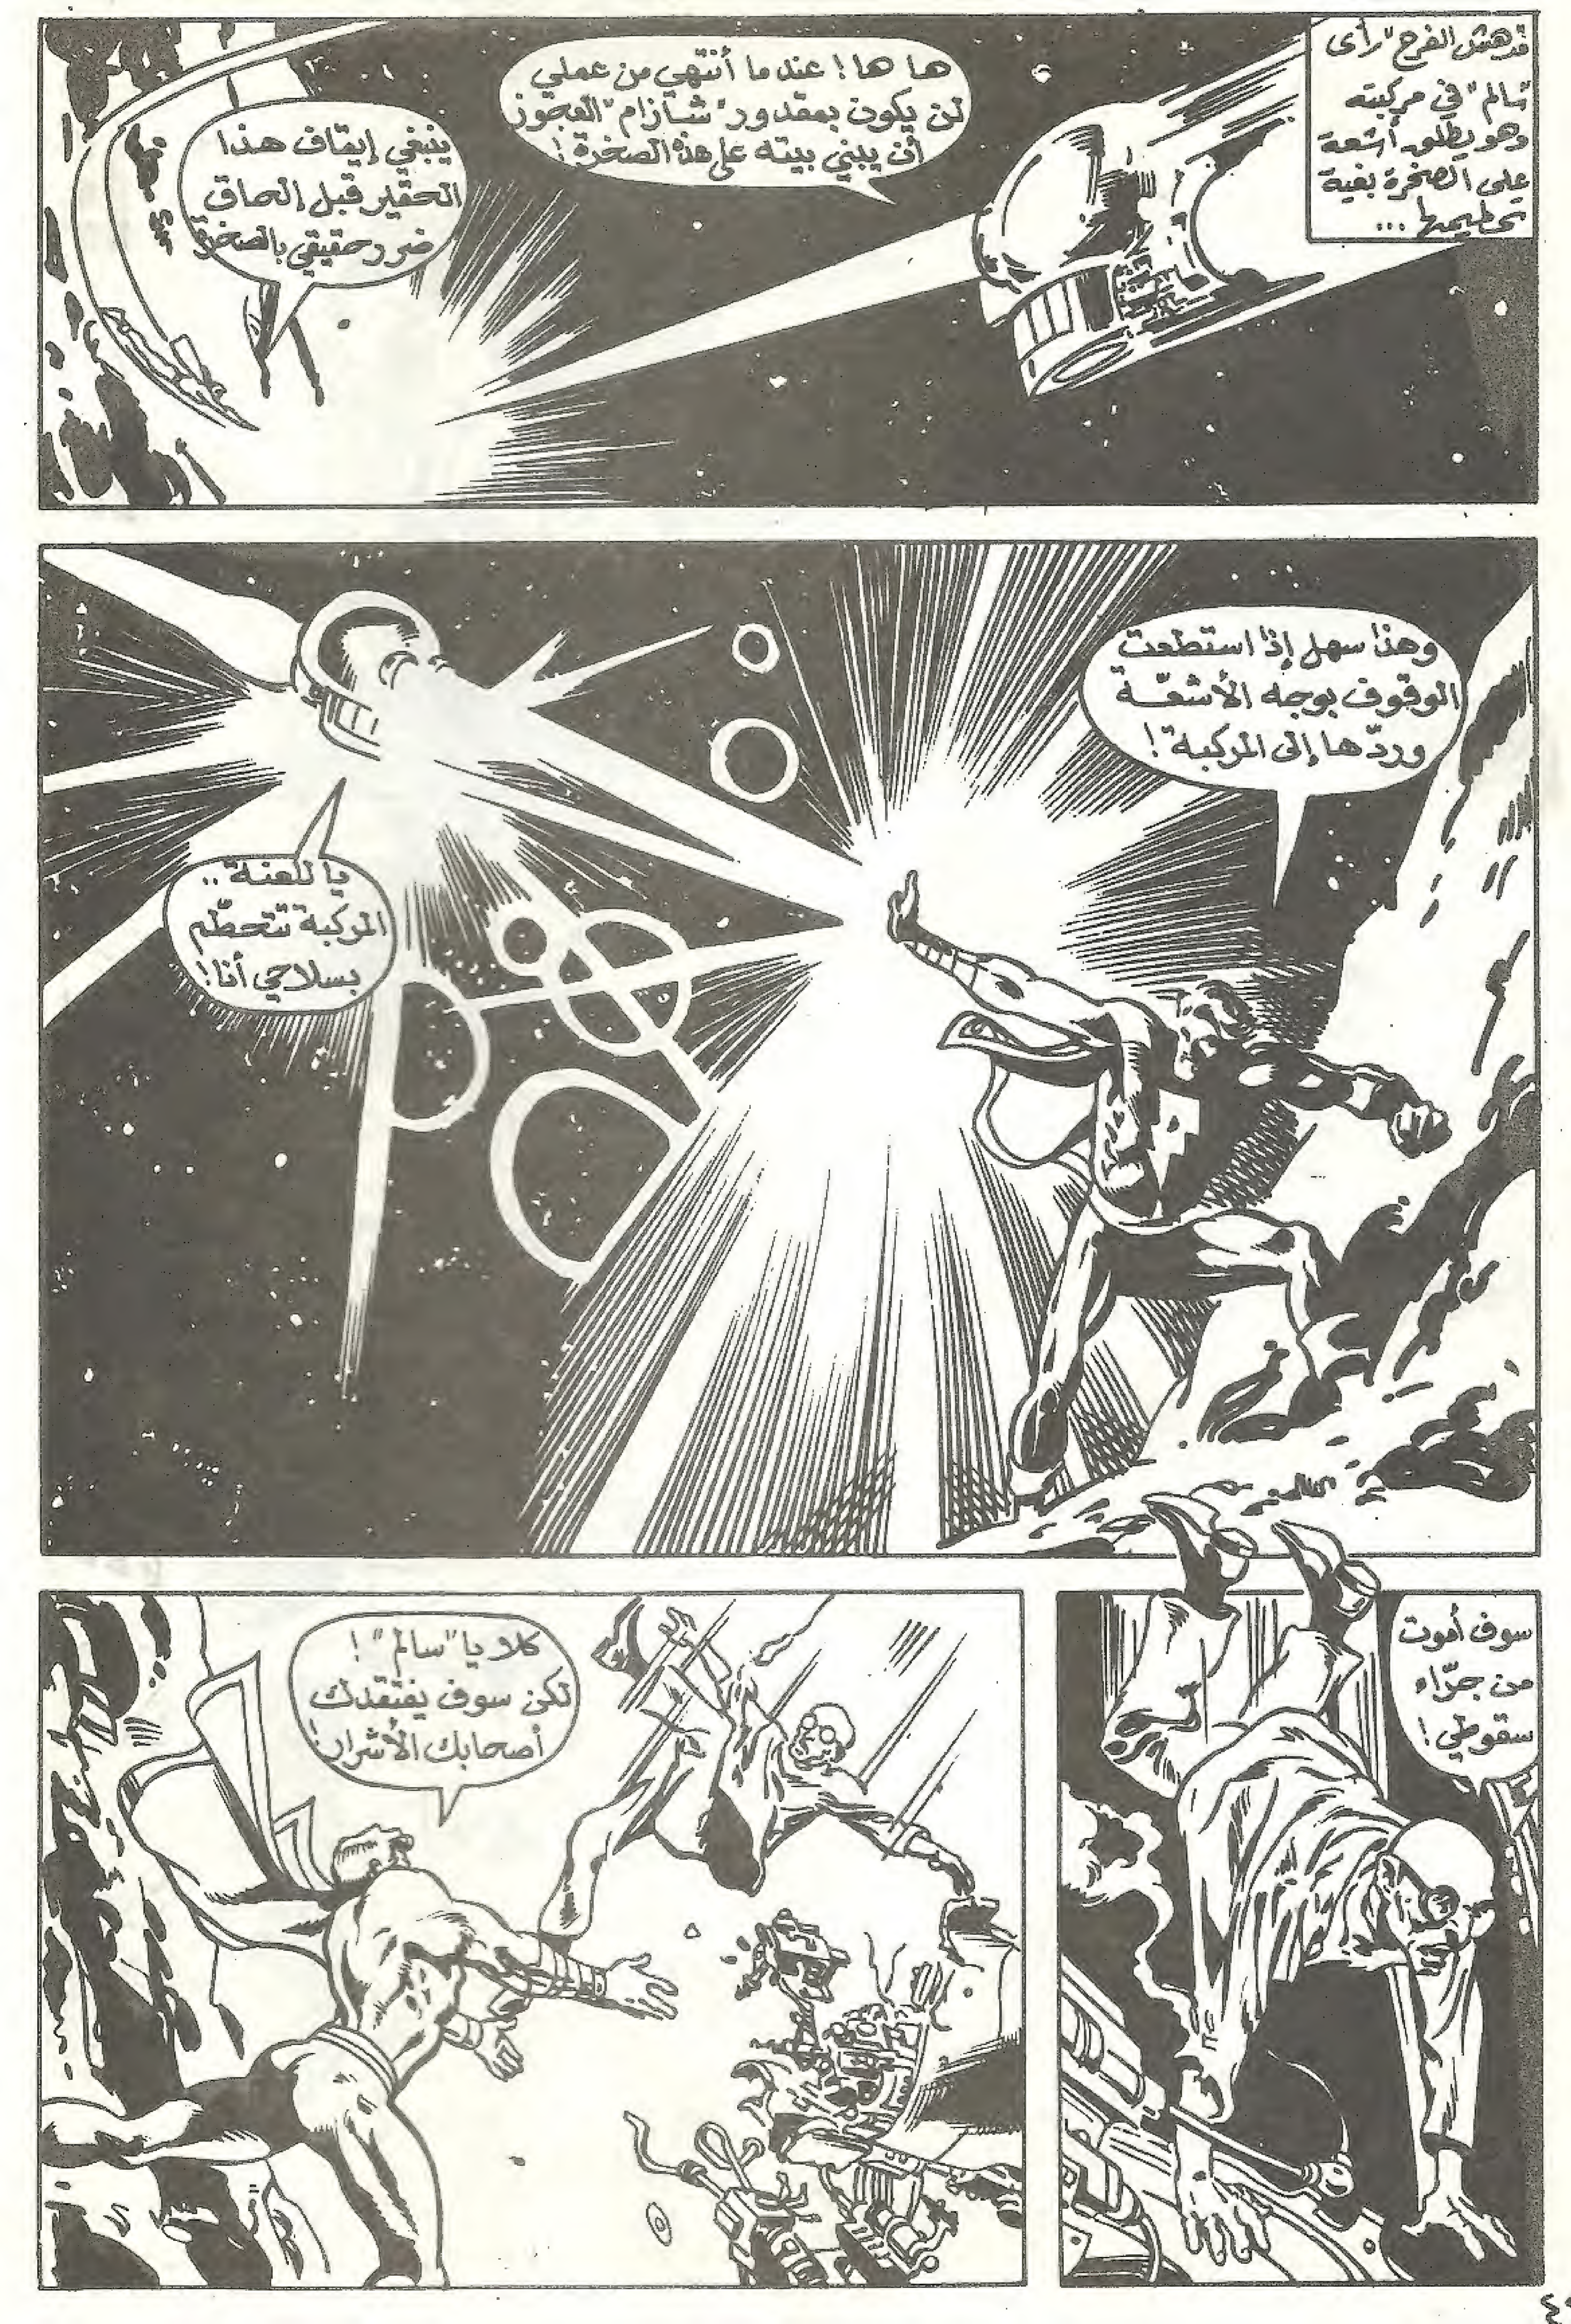 فدهش الفرح "رأى
سالم" في مركبته
وهو يطلق أشعة
على الصخرة بغية
تحطيمها ...
ها ها! عندما أنتهي من عملي
لن يكون بمقدور "شازام" العجوز
أن يبني بيته على هذه الصخرة!
ينبغي إيقاف هذا
الحقير قبل إلحاق
ضرر حقيقي بالصخرة
وهذا سهل إذا استطعت
الوقوف بوجه الأشعّة
وردّها إلى المركبة!
يا للعنة ..
المركبة تتحطّم
بسلاحي أنا!
سوف أموت
من جرّاء
سقوطي!
كلا يا "سالم"!
لكن سوف يفتقدك
أصحابك الأشرار!